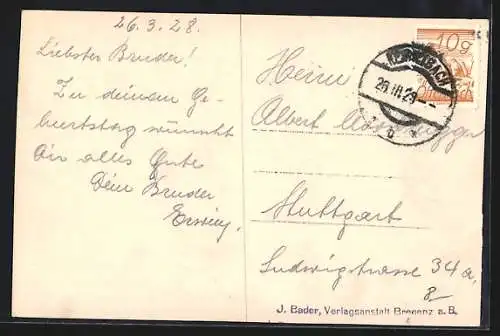 26. 3. 28.
Liebster Bruder!
Zu deinem Ge-
burtstag wünscht
Dir alles Gute
Dein Bruder
Erwin.
10g
26.III.28
Herrn
Albert
Stuttgart
Ludwigstrasse 34a.
J. Bader, Verlagsanstalt Bregenz a. B.